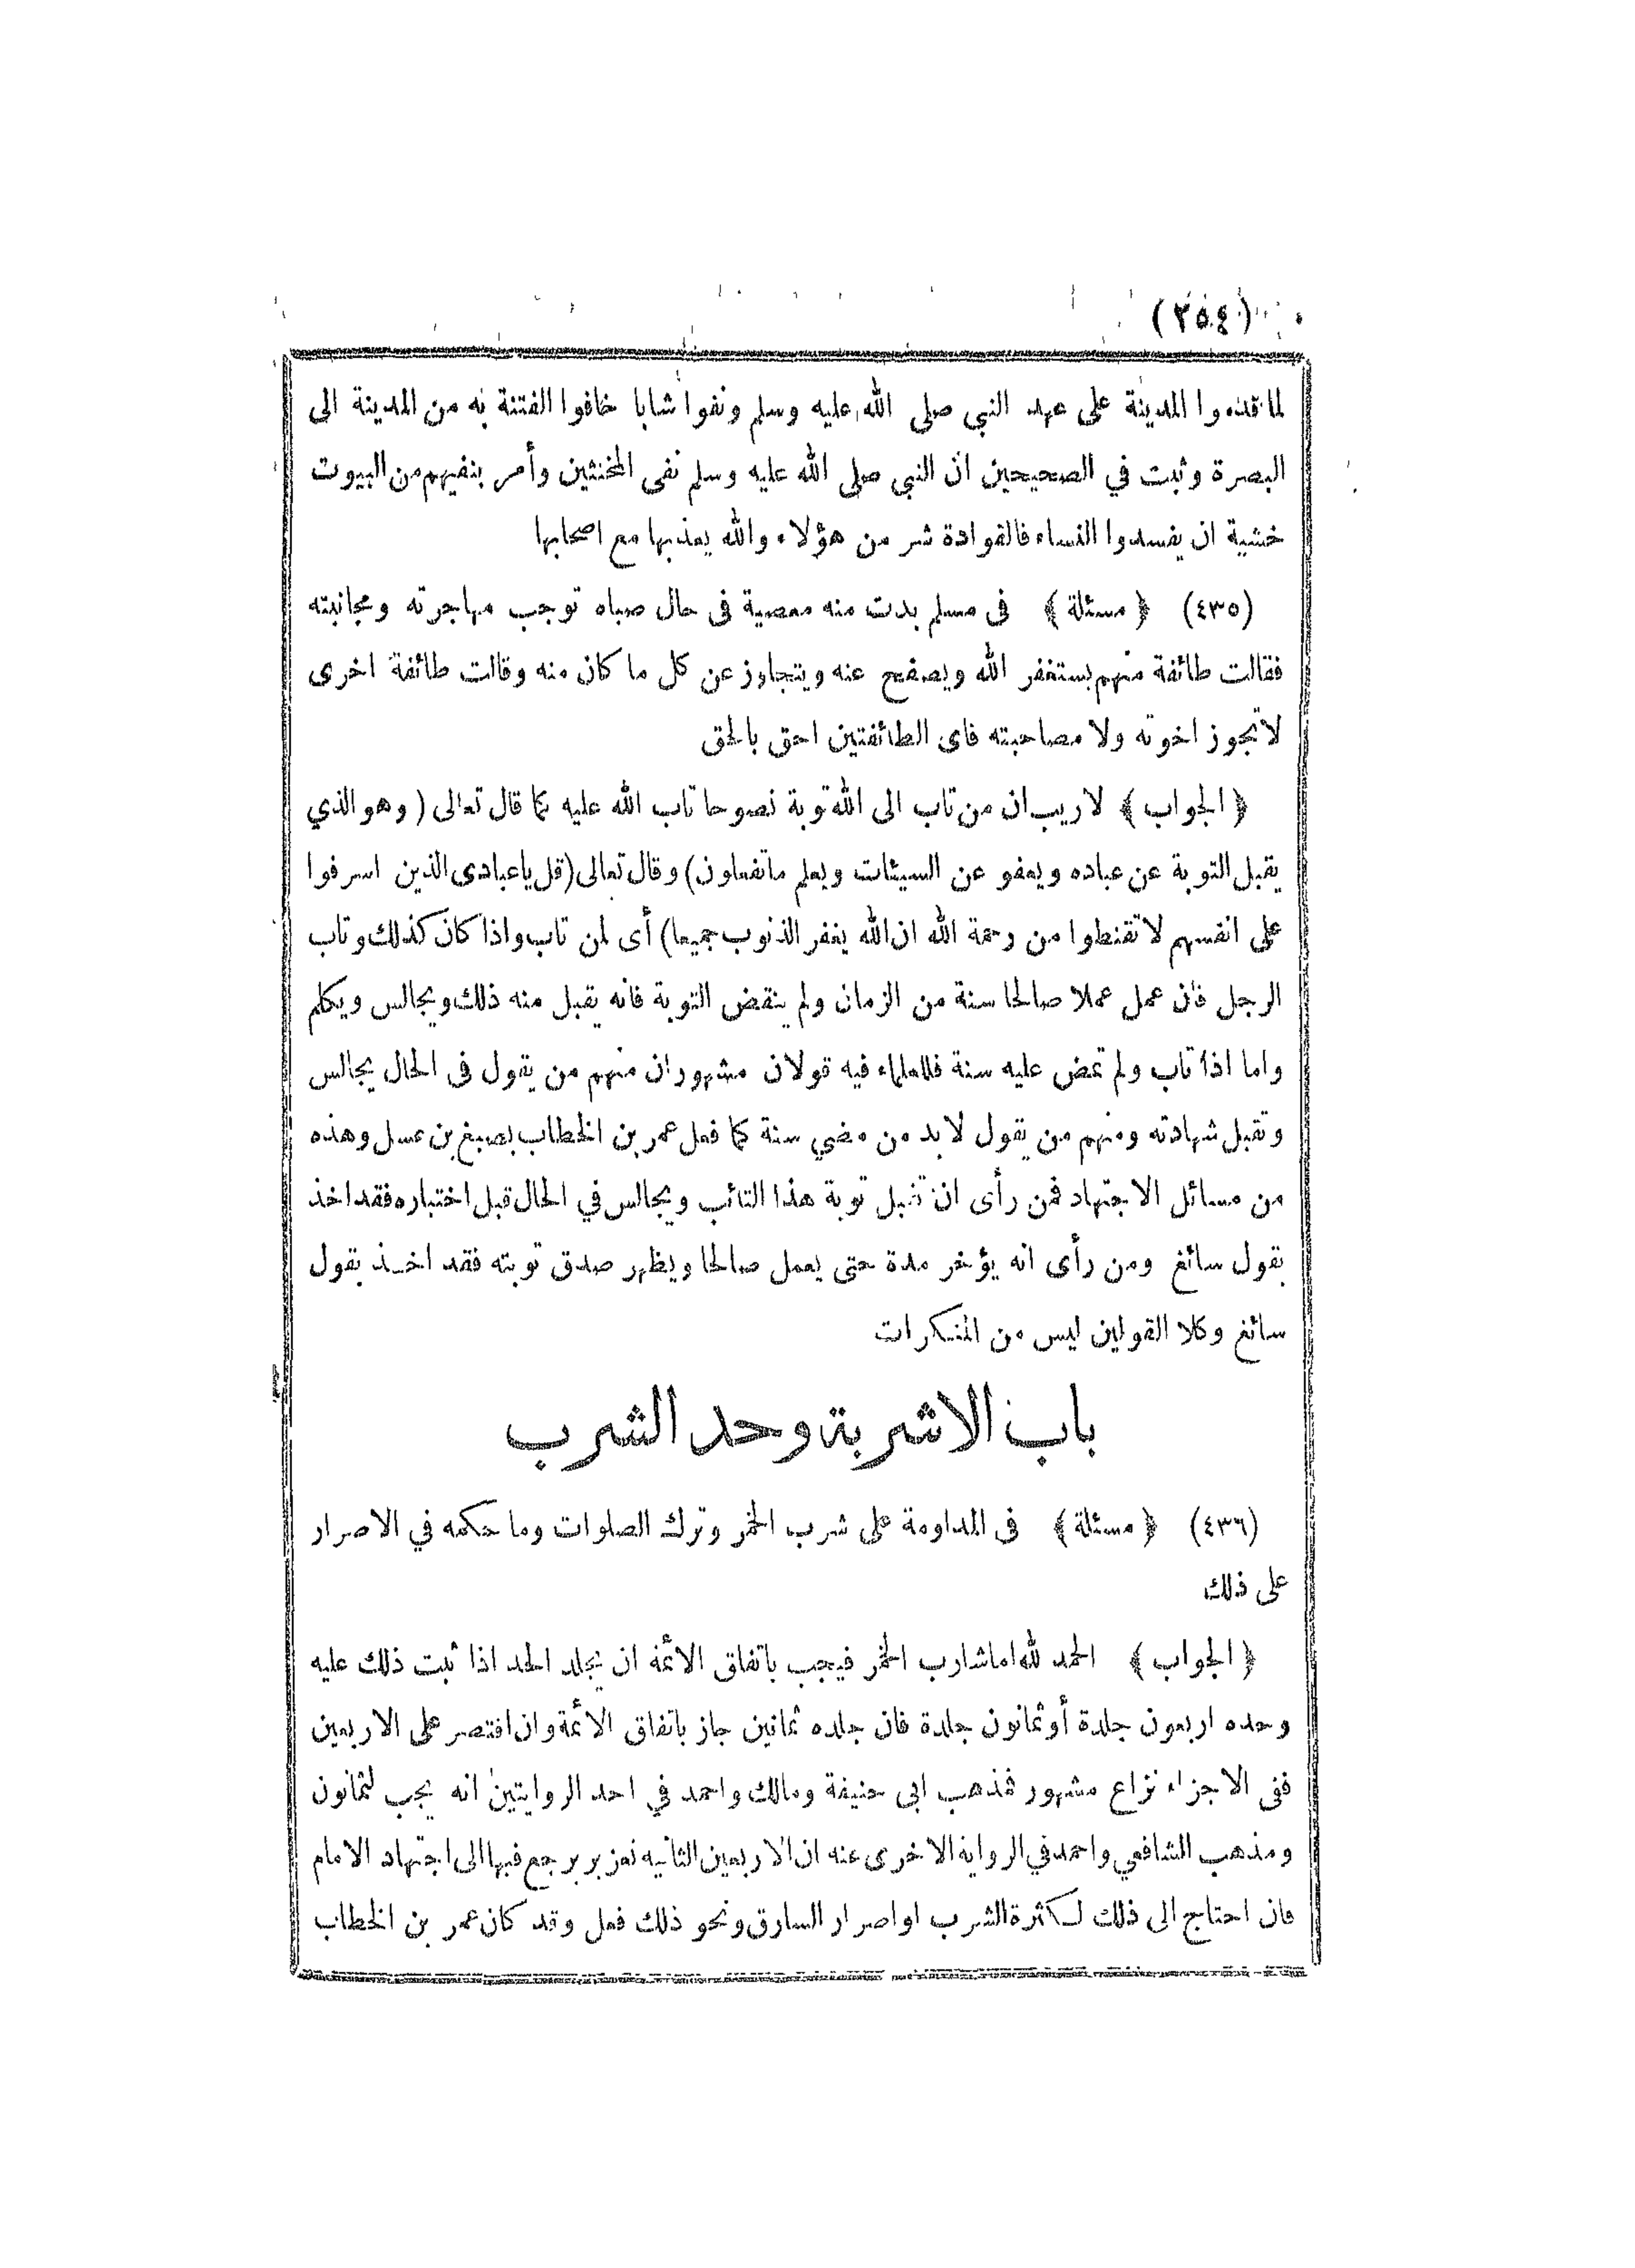 (٢٥٤)
لما قدموا المدينة على عهد النبي صلى الله عليه وسلم ونفوا شابا خافوا الفتنة به من المدينة الى
البصرة وثبت في الصحيحين ان النبي صلى الله عليه وسلم نفى المخنثين وأمر بنفيهم من البيوت
خشية ان يفسدوا النساء فالقوادة شر من هؤلاء والله يعذبها مع اصحابها
(٤٣٥) ﴿ مسئلة ﴾ فى مسلم بدت منه معصية فى حال صباه توجب مهاجرته ومجانبته
فقالت طائفة منهم يستغفر الله ويصفح عنه ويتجاوز عن كل ما كان منه وقالت طائفة اخرى
لا تجوز اخوته ولا مصاحبته فاى الطائفتين احق بالحق
﴿ الجواب ﴾ لاريب ان من تاب الى الله توبة نصوحا تاب الله عليه كما قال تعالى ( وهو الذي
يقبل التوبة عن عباده ويعفو عن السيئات ويعلم ماتفعلون) وقال تعالى (قل ياعبادى الذين اسرفوا
على انفسهم لا تقنطوا من رحمة الله ان الله يغفر الذنوب جميعا) أى لمن تاب واذا كان كذلك وتاب
الرجل فان عمل عملا صالحا سنة من الزمان ولم ينقض التوبة فانه يقبل منه ذلك ويجالس ويكلم
واما اذا تاب ولم تمض عليه سنة فللعلماء فيه قولان مشهوران منهم من يقول فى الحال يجالس
وتقبل شهادته ومنهم من يقول لابد من مضي سنة كما فعل عمر بن الخطاب بصبيغ بن عسل وهذه
من مسائل الاجتهاد فمن رأى ان تقبل توبة هذا التائب ويجالس في الحال قبل اختباره فقد اخذ
بقول سائغ ومن رأى انه يؤخر مدة حتى يعمل صالحا ويظهر صدق توبته فقد اخذ بقول
سائغ وكلا القولين ليس من المنكرات
باب الاشربة وحد الشرب
(٤٣٦) ﴿ مسئلة ﴾ فى المداومة على شرب الخمر وترك الصلوات وما حكمه في الاصرار
على ذلك
﴿ الجواب ﴾ الحمد لله اما شارب الخمر فيجب باتفاق الائمة ان يجلد الحد اذا ثبت ذلك عليه
وحده اربعون جلدة أو ثمانون جلدة فان جلده ثمانين جاز باتفاق الائمة وان اقتصر على الاربعين
ففى الاجزاء نزاع مشهور فمذهب ابى حنيفة ومالك واحمد في احد الروايتين انه يجب لثمانون
ومذهب الشافعي واحمد في الرواية الاخرى عنه ان الاربعين الثانيه تعزير يرجع فيها الى اجتهاد الامام
فان احتاج الى ذلك لكثرة الشرب او اصرار السارق ونحو ذلك فعل وقد كان عمر بن الخطاب